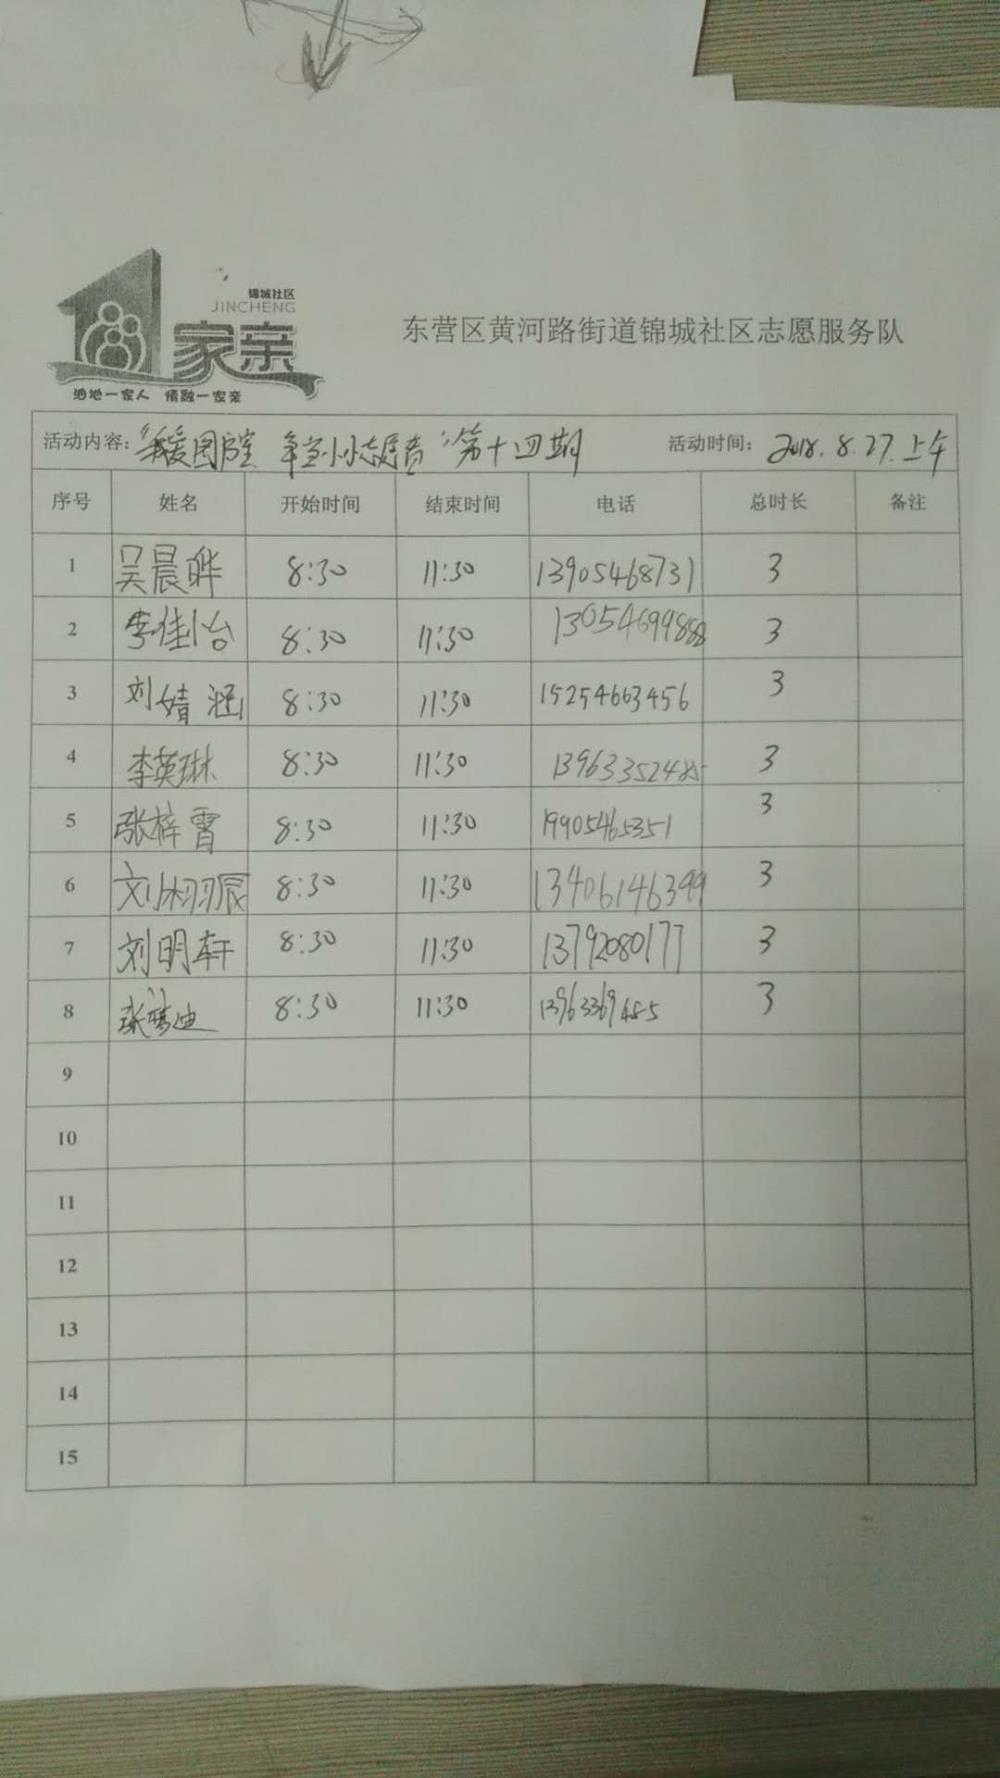 锦城社区
JINCHENG
家亲
油地一家人 情融一家亲
东营区黄河路街道锦城社区志愿服务队
活动内容：“我爱图书室 争当小志愿者”第十四期 活动时间：2018.8.27.上午
序号 姓名 开始时间 结束时间 电话 总时长 备注
1 吴晨晔 8:30 11:30 13905468731 3
2 李佳怡 8:30 11:30 13054699888 3
3 刘婧涵 8:30 11:30 15254663456 3
4 李英琳 8:30 11:30 13963352485 3
5 张梓霄 8:30 11:30 19905465351 3
6 刘栩辰 8:30 11:30 13406146399 3
7 刘明轩 8:30 11:30 13792080177 3
8 张 迪 8:30 11:30 13963369485 3
9
10
11
12
13
14
15